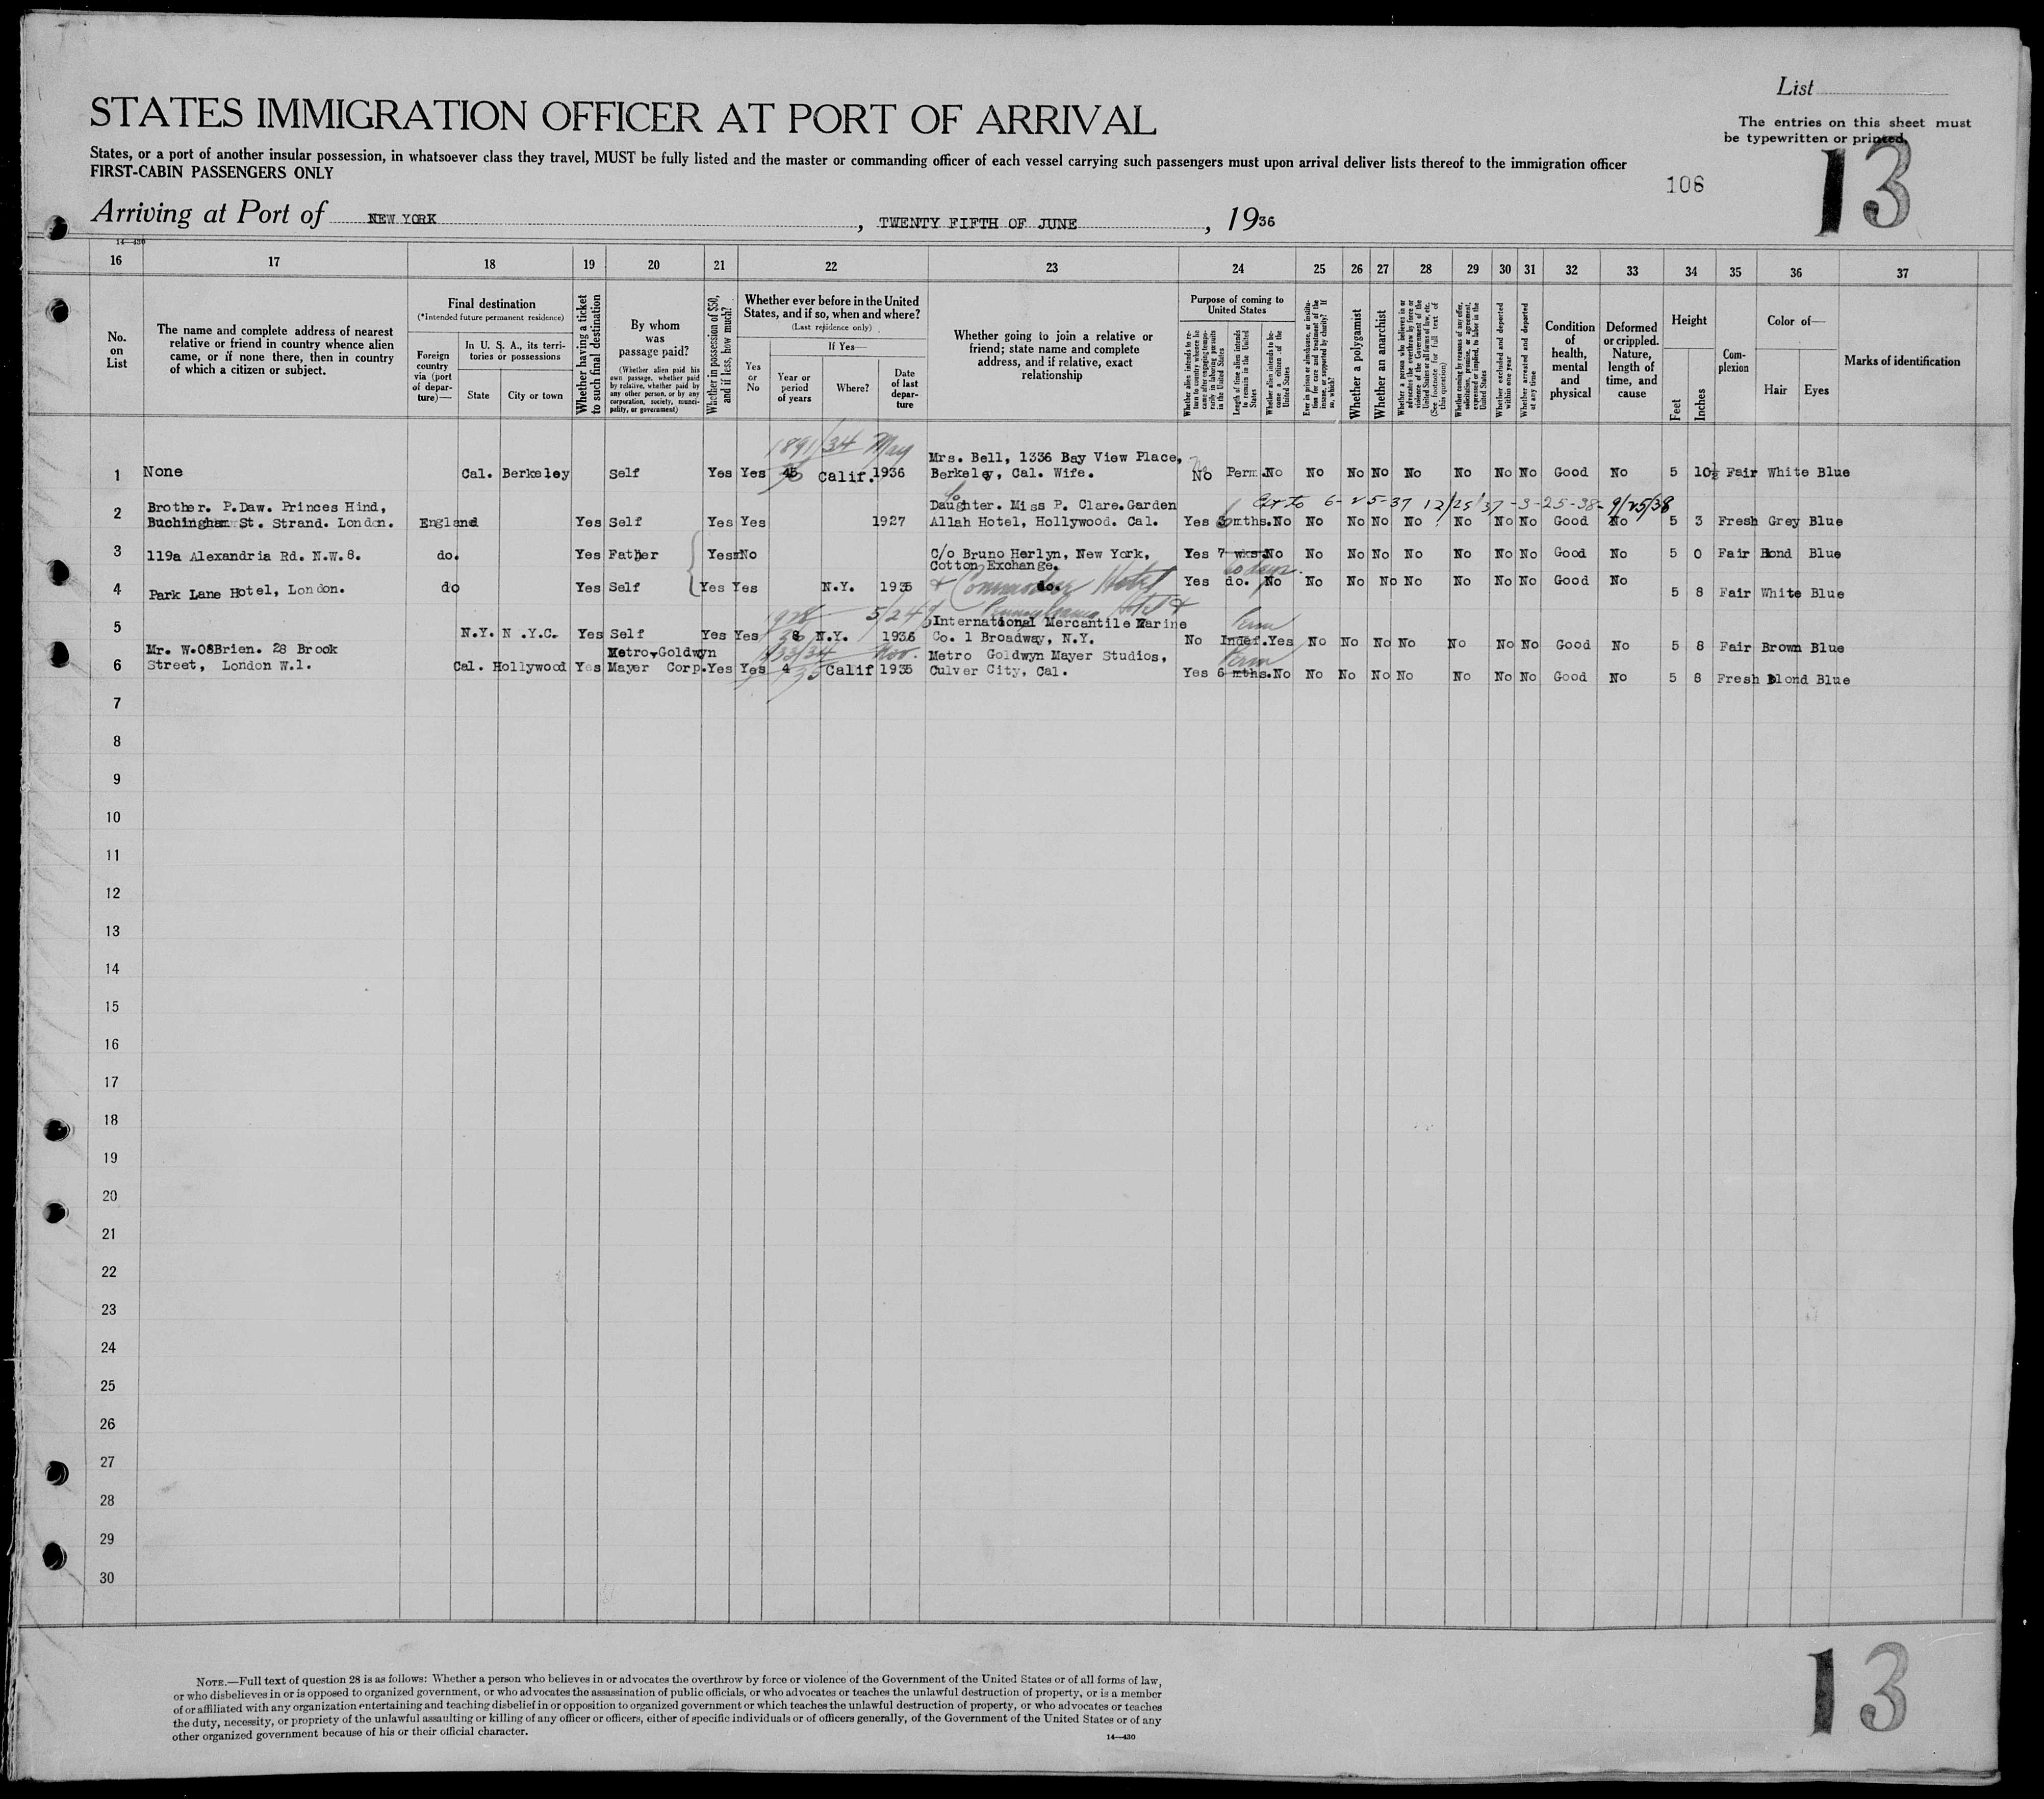 List
STATES IMMIGRATION OFFICER AT PORT OF ARRIVAL
The entries on this sheet must
be typewritten or printed.
States, or a port of another insular possession, in whatsoever class they travel, MUST be fully listed and the master or commanding officer of each vessel carrying such passengers must upon arrival deliver lists thereof to the immigration officer
FIRST-CABIN PASSENGERS ONLY
106
13
Arriving at Port of NEW YORK, TWENTY FIFTH OF JUNE, 1936
14-430
16 17 18 19 20 21 22 23 24 25 26 27 28 29 30 31 32 33 34 35 36 37
No. on List
The name and complete address of nearest relative or friend in country whence alien came, or if none there, then in country of which a citizen or subject.
Final destination
(*Intended future permanent residence)
Foreign country via (port of departure)—
In U. S. A., its territories or possessions
State
City or town
Whether having a ticket to such final destination
By whom was passage paid?
(Whether alien paid his own passage, whether paid by relative, whether paid by any other person, or by any corporation, society, municipality, or government)
Whether in possession of $50, and if less, how much?
Whether ever before in the United States, and if so, when and where?
(Last residence only)
Yes or No
If Yes—
Year or period of years
Where?
Date of last departure
Whether going to join a relative or friend; state name and complete address, and if relative, exact relationship
Purpose of coming to United States
Whether alien intends to return to country whence he came after engaging temporarily in laboring pursuits in the United States
Length of time alien intends to remain in the United States
Whether alien intends to become a citizen of the United States
Ever in prison or almshouse, or institution for care and treatment of the insane, or supported by charity? If so, which?
Whether a polygamist
Whether an anarchist
Whether a person who believes in or advocates the overthrow by force or violence of the Government of the United States or all forms of law, etc. (See footnote for full text of this question)
Whether coming by reasons of any offer, solicitation, promise, or agreement, expressed or implied, to labor in the United States
Whether excluded and deported within one year
Whether arrested and deported at any time
Condition of health, mental and physical
Deformed or crippled. Nature, length of time, and cause
Height
Feet
Inches
Complexion
Color of—
Hair
Eyes
Marks of identification
1891/34 May
1 None Cal. Berkeley Self Yes Yes 45 Calif. 1936 Mrs. Bell, 1336 Bay View Place, Berkeley, Cal. Wife. No Perm. No No No No No No No No Good No 5 10½ Fair White Blue
Ext to 6-25-37 12/25/37-3-25-38-9/25/38
2 Brother. P.Daw. Princes Hind, Buchingham St. Strand. London. England Yes Self Yes Yes 1927 Daughter. Miss P. Clare. Garden Allah Hotel, Hollywood. Cal. Yes mths. No No No No No No No No Good No 5 3 Fresh Grey Blue
3 119a Alexandria Rd. N.W.8. do. Yes Father Yes No C/o Bruno Herlyn, New York, Cotton Exchange. Yes 7 wks. No No No No No No No No Good No 5 0 Fair Blond Blue
60 days.
4 Park Lane Hotel, London. do Yes Self Yes Yes N.Y. 1935 do. Yes do. No No No No No No No No Good No 5 8 Fair White Blue
& Commodore Hotel
Pennsylvania Hotel &
1928 5/24
5 N.Y. N.Y.C. Yes Self Yes Yes 8 N.Y. 1936 International Mercantile Marine Co. 1 Broadway, N.Y. No Indef. Yes No No No No No No No Good No 5 8 Fair Brown Blue
Perm
33/34 Nov.
6 Mr. W.O8Brien. 28 Brook Street, London W.1. Cal. Hollywood Yes Metro Goldwyn Mayer Corp. Yes Yes 4 Calif 1935 Metro Goldwyn Mayer Studios, Culver City, Cal. Yes 6 mths. No No No No No No No No Good No 5 8 Fresh Blond Blue
Perm
7
8
9
10
11
12
13
14
15
16
17
18
19
20
21
22
23
24
25
26
27
28
29
30
NOTE.—Full text of question 28 is as follows: Whether a person who believes in or advocates the overthrow by force or violence of the Government of the United States or of all forms of law,
or who disbelieves in or is opposed to organized government, or who advocates the assassination of public officials, or who advocates or teaches the unlawful destruction of property, or is a member
of or affiliated with any organization entertaining and teaching disbelief in or opposition to organized government or which teaches the unlawful destruction of property, or who advocates or teaches
the duty, necessity, or propriety of the unlawful assaulting or killing of any officer or officers, either of specific individuals or of officers generally, of the Government of the United States or of any
other organized government because of his or their official character.
14-430
13